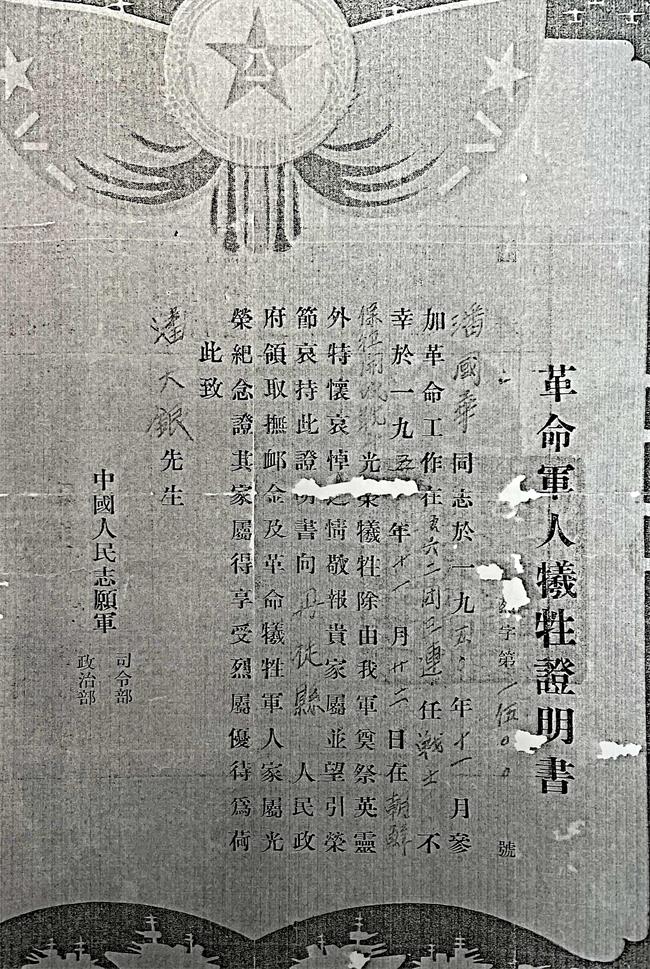 八一
革命軍人犧牲證明書
字第 伍〇〇 號
潘國華同志於一九五〇年十一月參
加革命工作在五六二團 連任戰士不
幸於一九五 年十一月廿二日在朝鮮
保 開城戰 光榮犧牲除由我軍奠祭英靈
外特懷哀悼之情敬報貴家屬並望引榮
節哀持此證明書向丹徒縣人民政
府領取撫卹金及革命犧牲軍人家屬光
榮紀念證其家屬得享受烈屬優待爲荷
此致
潘大銀先生
中國人民志願軍
司令部
政治部